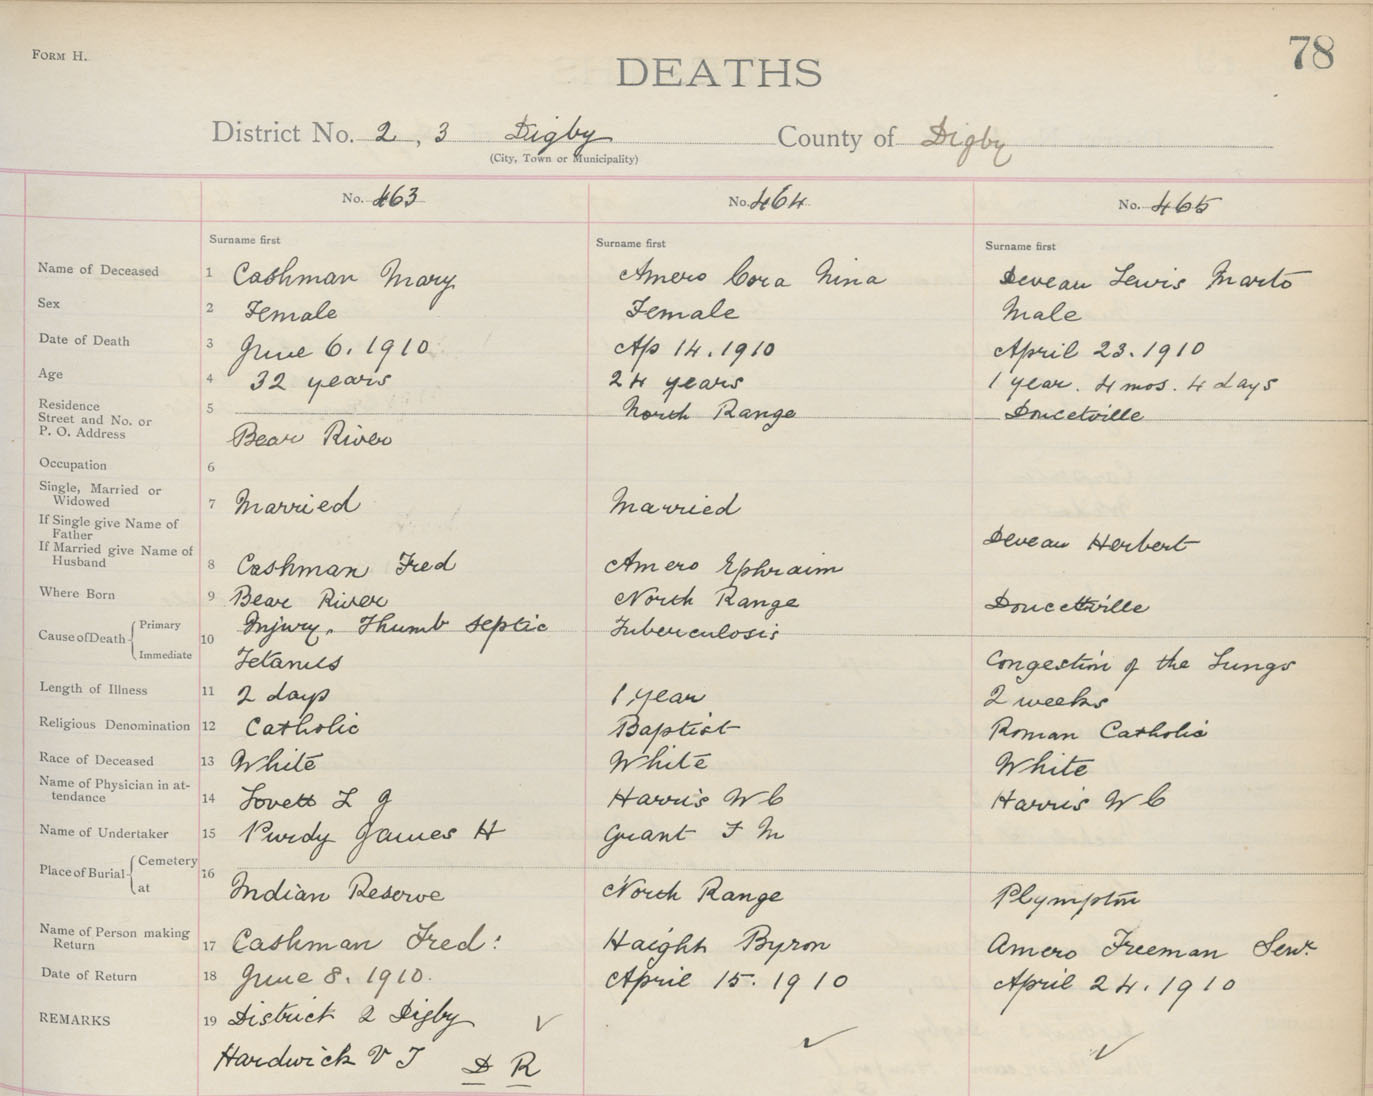 78
FORM H.
DEATHS
District No. 2, 3 Digby County of Digby
(City, Town or Municipality)
No. 463 No. 464 No. 465
Surname first Surname first Surname first
Name of Deceased 1 Cashman Mary Amero Cora Nina Deveau Lewis Marto
Sex 2 Female Female Male
Date of Death 3 June 6. 1910 Ap 14. 1910 April 23. 1910
Age 4 32 years 24 years 1 year. 4 mos. 4 days
Residence
Street and No. or 5 North Range Doucetville
P. O. Address Bear River
Occupation 6
Single, Married or
Widowed 7 Married Married
If Single give Name of
Father Deveau Herbert
If Married give Name of
Husband 8 Cashman Fred Amero Ephraim
Where Born 9 Bear River North Range Doucettville
Cause of Death Primary 10 Injury. Thumb septic Tuberculosis
Immediate Tetanus Congestion of the Lungs
Length of Illness 11 2 days 1 year 2 weeks
Religious Denomination 12 Catholic Baptist Roman Catholic
Race of Deceased 13 White White White
Name of Physician in at-
tendance 14 Lovett L J Harris W C Harris W C
Name of Undertaker 15 Purdy James H Grant F M
Place of Burial Cemetery 16
at Indian Reserve North Range Plympton
Name of Person making
Return 17 Cashman Fred: Haight Byron Amero Freeman Senr.
Date of Return 18 June 8. 1910. April 15. 1910 April 24. 1910
REMARKS 19 District 2 Digby ✓ ✓ ✓
Hardwick V T D R